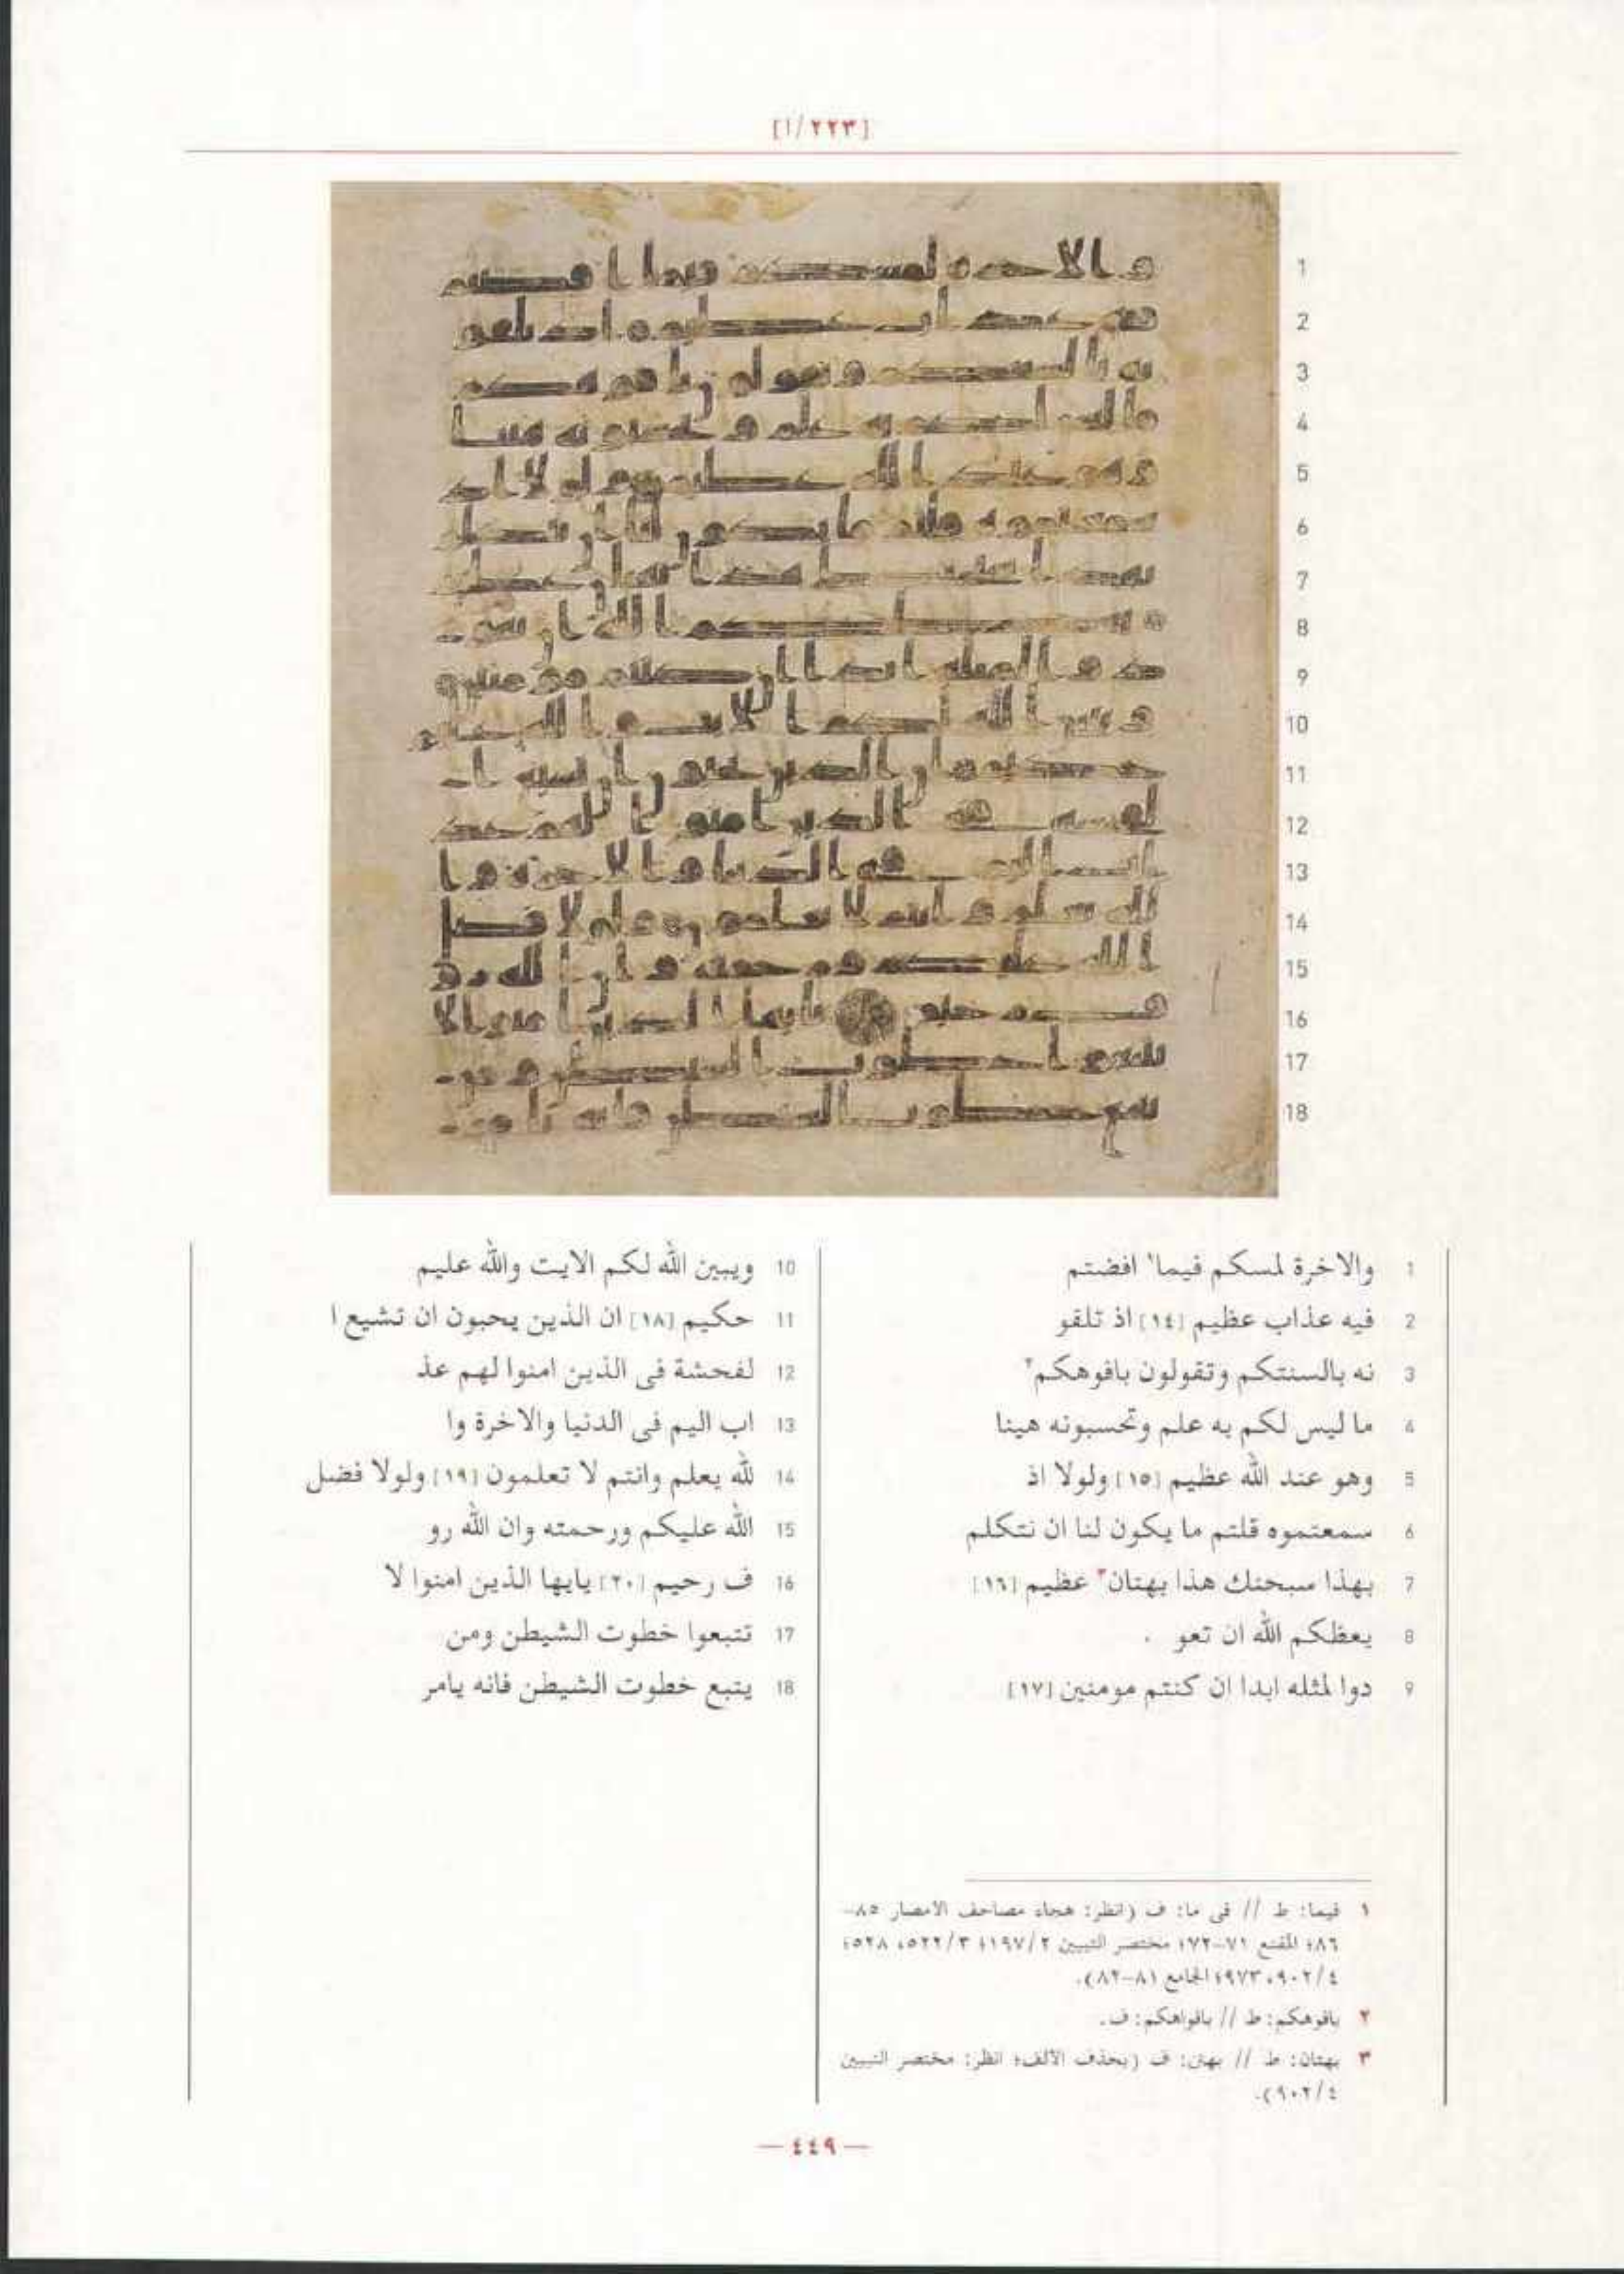 [٢٢٣/ا]
1 والاخرة لمسكم فيما١ افضتم
2 فيه عذاب عظيم [١٤] اذ تلقو
3 نه بالسنتكم وتقولون بافوهكم٢
4 ما ليس لكم به علم وتحسبونه هينا
5 وهو عند الله عظيم [١٥] ولولا اذ
6 سمعتموه قلتم ما يكون لنا ان نتكلم
7 بهذا سبحنك هذا بهتان٣ عظيم [١٦]
8 يعظكم الله ان تعو
9 دوا لمثله ابدا ان كنتم مومنين [١٧]
10 ويبين الله لكم الايت والله عليم
11 حكيم [١٨] ان الذين يحبون ان تشيع ا
12 لفحشة فى الذين امنوا لهم عذ
13 اب اليم فى الدنيا والاخرة وا
14 لله يعلم وانتم لا تعلمون [١٩] ولولا فضل
15 الله عليكم ورحمته وان الله رو
16 ف رحيم [٢٠] يايها الذين امنوا لا
17 تتبعوا خطوت الشيطن ومن
18 يتبع خطوت الشيطن فانه يامر
١ فيما: ط // فى ما: ف (انظر: هجاء مصاحف الامصار ٨٥-
٨٦؛ المقنع ٧١-٧٢؛ مختصر التبيين ١٩٧/٢؛ ٥٢٢/٣، ٥٢٨؛
٩٠٢/٤، ٩٧٣؛ الجامع ٨١-٨٢).
٢ بافوهكم: ط // بافواهكم: ف.
٣ بهتان: ط // بهتن: ف (بحذف الألف؛ انظر: مختصر التبيين
٩٠٢/٤).
— ٤٤٩ —